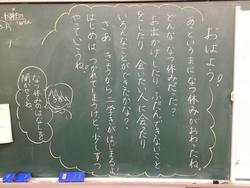 おはよう!
あというまになつ休みがおわったね。
どんななつ休みだった?
お出かけしたり ふだんできないこと
をしたり 会いたい人に会ったり
いろんなことができたかな?
さあ きょうから二学きがはじまるよ!
はじめは つかれてしまうけど 少しずつ
やっていこうね。
なつ休みのはなしを
聞かせてね